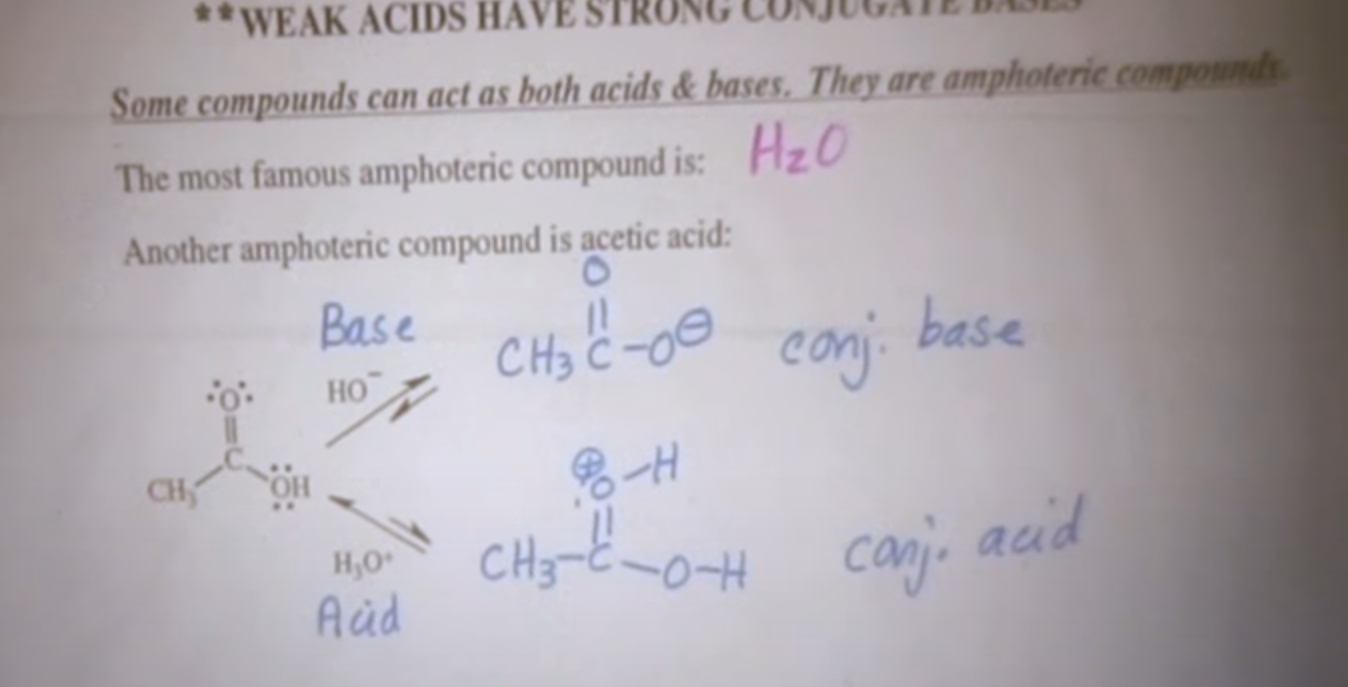 **WEAK ACIDS HAVE STRONG CONJUGATE BASES
Some compounds can act as both acids & bases. They are amphoteric compounds.
The most famous amphoteric compound is: H2O
Another amphoteric compound is acetic acid:
O
Base
CH3 C-O⊖ conj. base
O
HO⁻
C
⊕O-H
CH3 OH
H3O⁺
CH3-C-O-H conj. acid
Acid